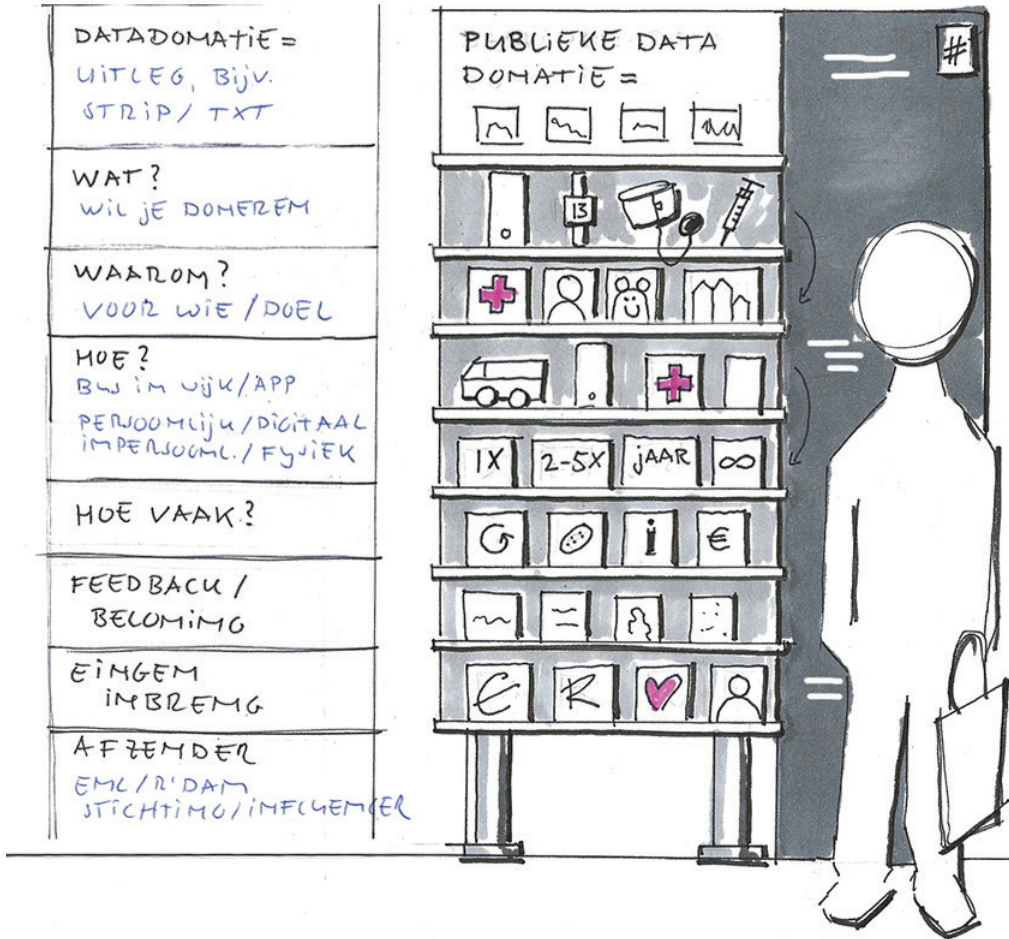 DATADONATiE =
UiTLEG, Bijv.
STRiP / TXT
WAT?
WiL jE DONEREN
WAAROM?
VOOR WiE / DOEL
HOE?
BUS iN WijK / APP
PERSOONLijK / DiGiTAAL
iMPERSOONL. / FYSiEK
HOE VAAK?
FEEDBACK /
BELONiNG
EiNGEN
iNBRENG
AFZENDER
EMC / R'DAM
STiCHTiNG / iNFLUENCER
PUBLiEKE DATA
DONATiE =
#
13
1X 2-5X jAAR ∞
i €
E R